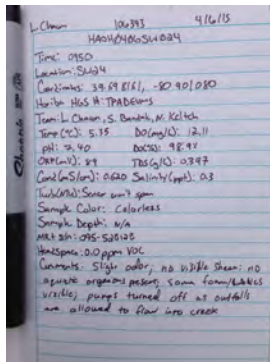 L. Chacon 106393 4/6/15
HASH0406SW024
Time: 0950
Location: SW24
Coordinates: 39.698161, -80.901080
Horiba HGS #:
Team: L. Chacon, S. Bandak, N. Keltch
Temp (°C): 5.35 DO(mg/L): 12.11
pH: 7.40 DO(%): 98.9%
ORP(mV): 89 TDS(g/L): 0.397
Cond(mS/cm): 0.620 Salinity(ppt): 0.3
Turb(NTU): Sensor won't span
Sample Color: Colorless
Sample Depth: N/A
S/n: 095-528128
HeadSpace: 0.0 ppm VOC
Comments: Slight odor, no visible sheen; no
aquatic organisms present, some foam/bubbles
visible, pumps turned off as outfalls
are allowed to flow into creek